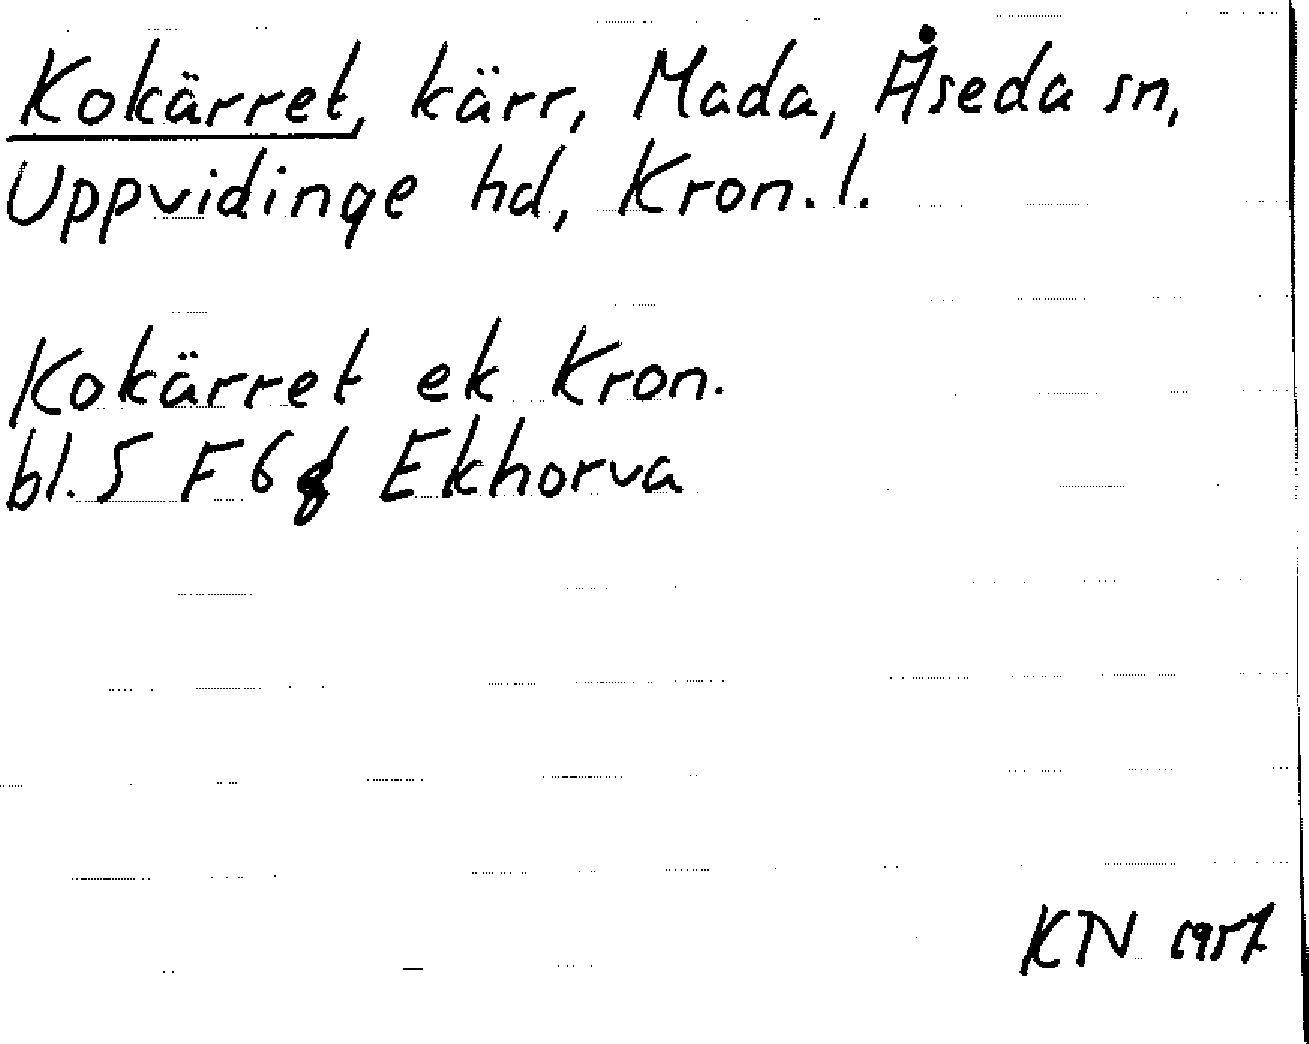 Kokärret, kärr, Mada, Åseda sn,
Uppvidinge hd, Kron. l.
Kokärret ek Kron.
bl. 5 F 6 f Ekhorva
KN 1957